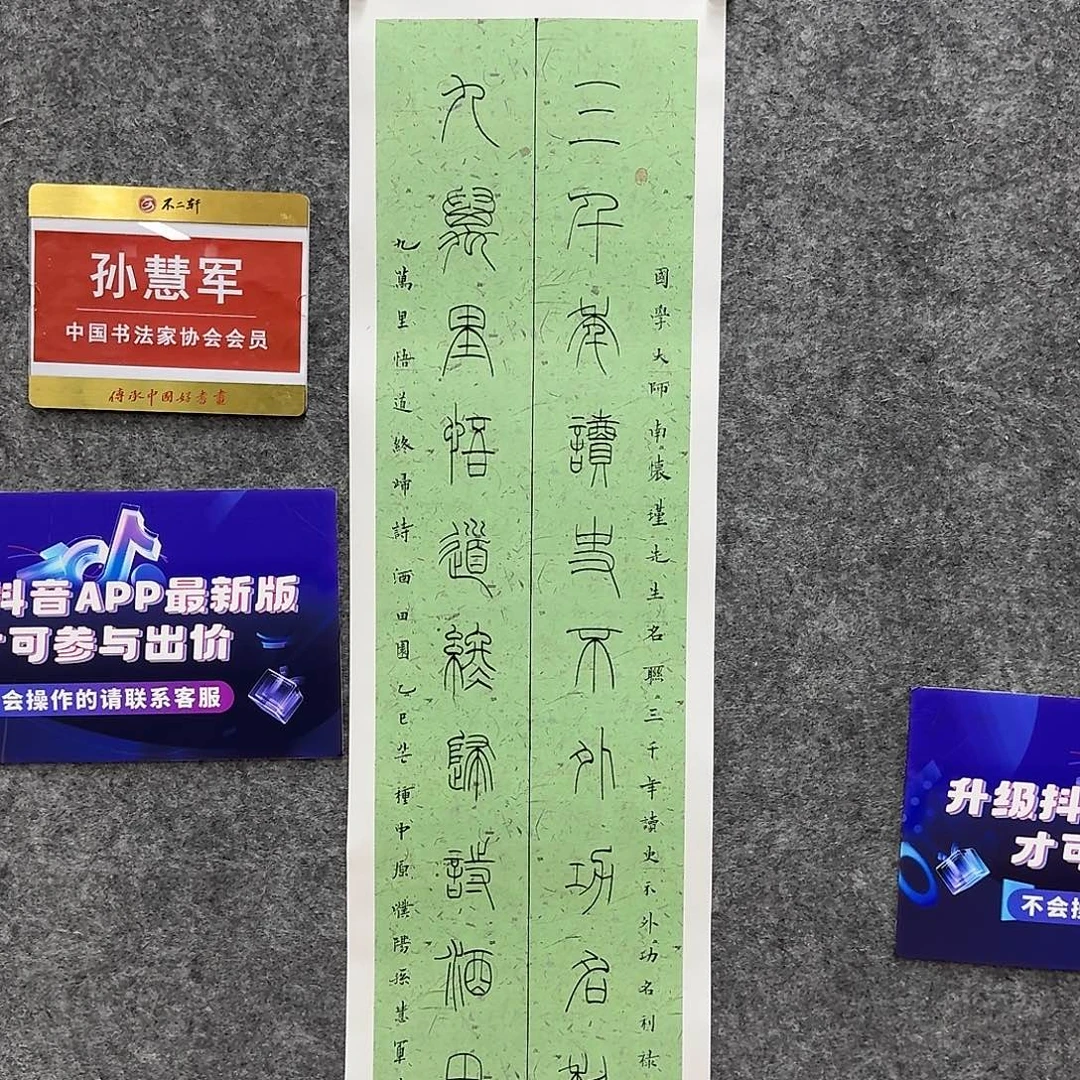 不二轩
孙慧军
中国书法家协会会员
傳承中國好書畫
抖音APP最新版
可参与出价
会操作的请联系客服
國學大師南懷瑾先生名聯三千年讀史不外功名利祿
三千年讀史不外功名利
九萬里悟道終歸詩酒田
九萬里悟道終歸詩酒田園乙巳芒種中原濮陽孫慧軍
升级抖
才可
不会操